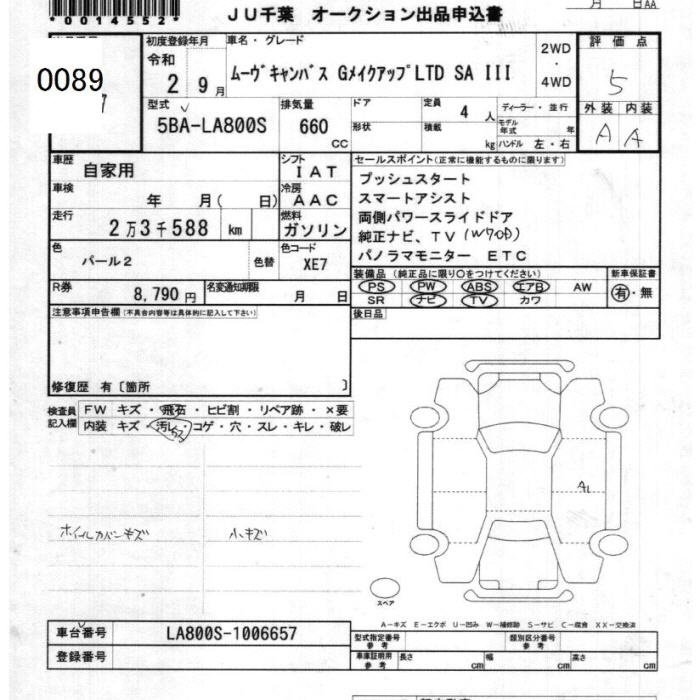 *0014552*
JU千葉 オークション出品申込書
月 日AA
0089
初度登録年月 車名・グレード 2WD ・ 4WD 評価点
令和 2 9月 ムーヴキャンバス GメイクアップLTD SA III 5
型式 排気量 ドア 定員 ディーラー・並行 外装 内装
5BA-LA800S 660 CC 形状 積載 4 人 kg モデル年式 年 ハンドル 左・右 A A
車歴 自家用 シフト IAT セールスポイント(正常に機能するものに限ります)
車検 年 月( 日) 冷房 AAC プッシュスタート
スマートアシスト
走行 2万3千588 km 燃料 ガソリン 両側パワースライドドア
純正ナビ、TV(W70D)
色 パール2 色替 色コード XE7 パノラマモニター ETC
装備品 (純正品に限り○をつけてください) 新車保証書
R券 8,790円 名変通知期限 月 日 PS PW ABS エアB AW 有・無
SR ナビ TV カワ
注意事項申告欄(不具合内容等は具体的に記入して下さい) 後日品
修復歴 有〔箇所 〕
検査員記入欄 FW キズ・飛石・ヒビ割・リペア跡・×要
内装 キズ・汚れ・コゲ・穴・スレ・キレ・破レ
A1
ホイルカバーキズ 小キズ
スペア
A-キズ E-エクボ U-凹み W-補修跡 S-サビ C-腐食 XX-交換済
車台番号 LA800S-1006657 型式指定番号 参考 類別区分番号 参考
登録番号 車庫証明用 参考 長さ cm 幅 cm 高さ cm